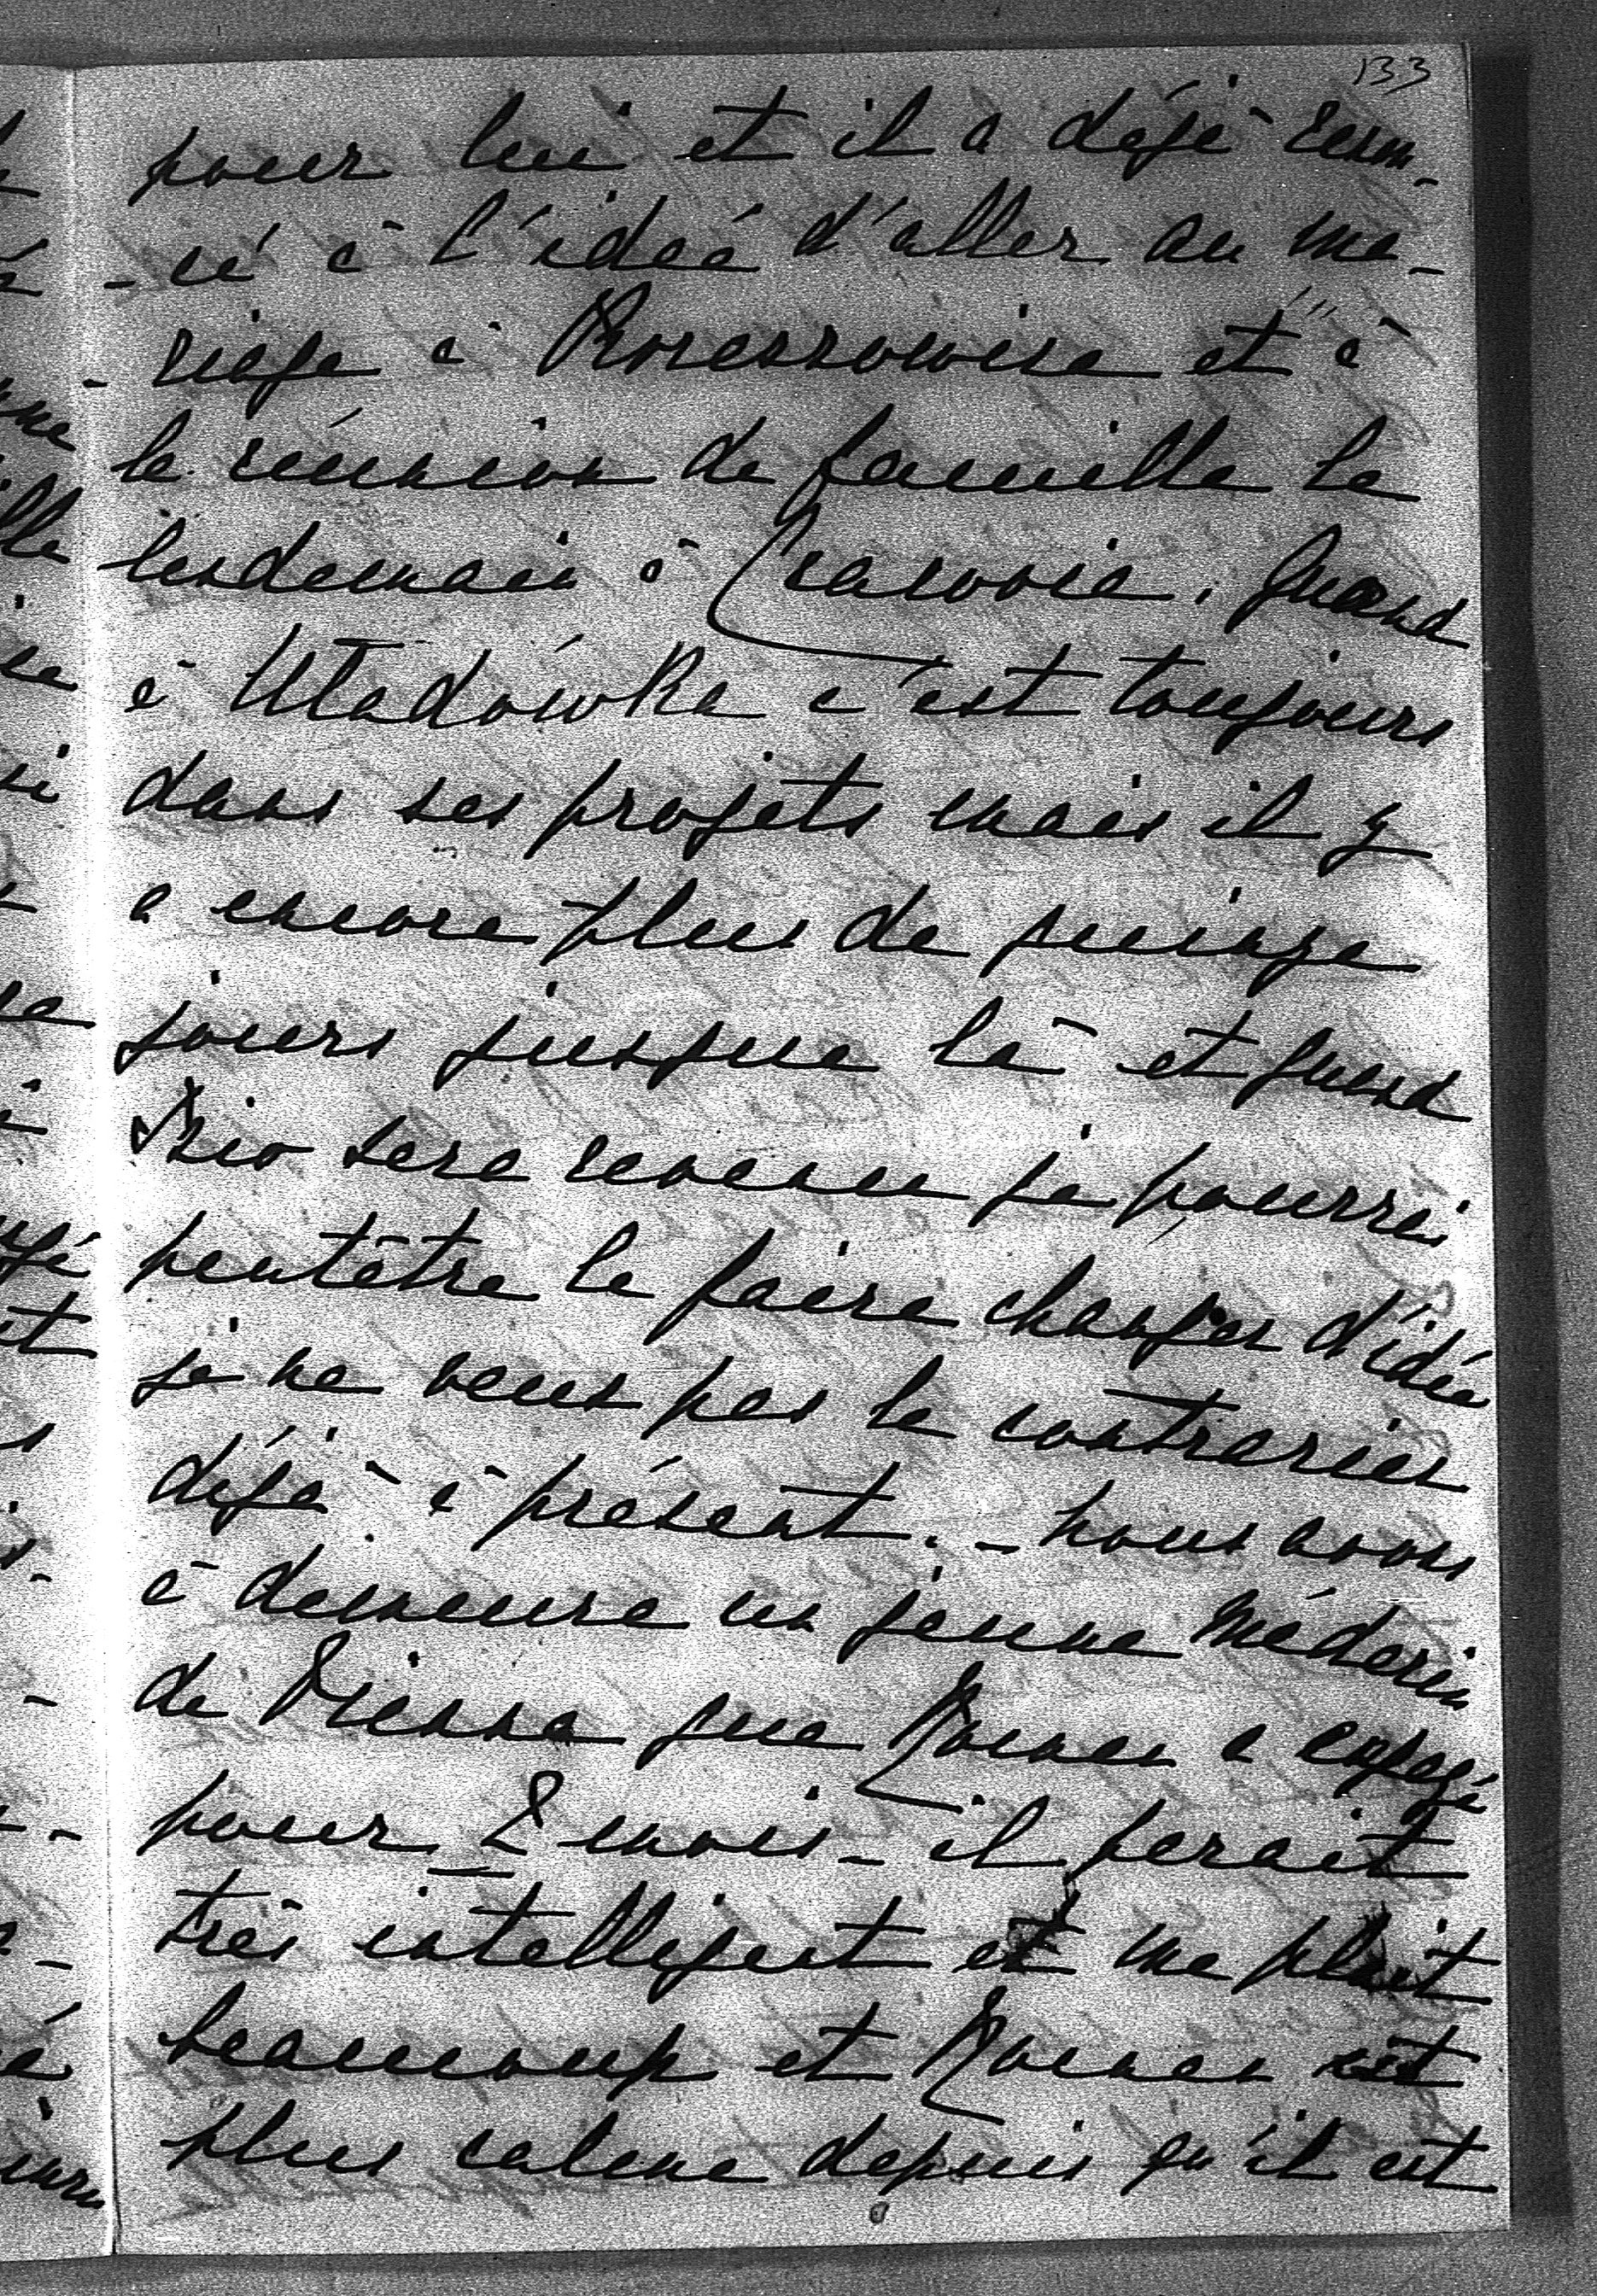 133
pour lui et il a déjà renon-
-cé à l'idée d'aller au ma-
-riage à Kocessowice et à
la réunion de famille le
lendemain à Cracovie. Quand
à Uładówka c'est toujours
dans ses projets mais il y
a encore plus de quinze
jours jusque là et quand
sera revenu je pourrai
peutêtre le faire changer d'idée
je ne veux pas le contrarier
déjà à présent. - nous avons
à demeure un jeune médecin
de Vienne que Roman a engagé
pour 2 mois - il parait
très intelligent et me plait
beaucoup et Roman est
plus calme depuis qu'il est